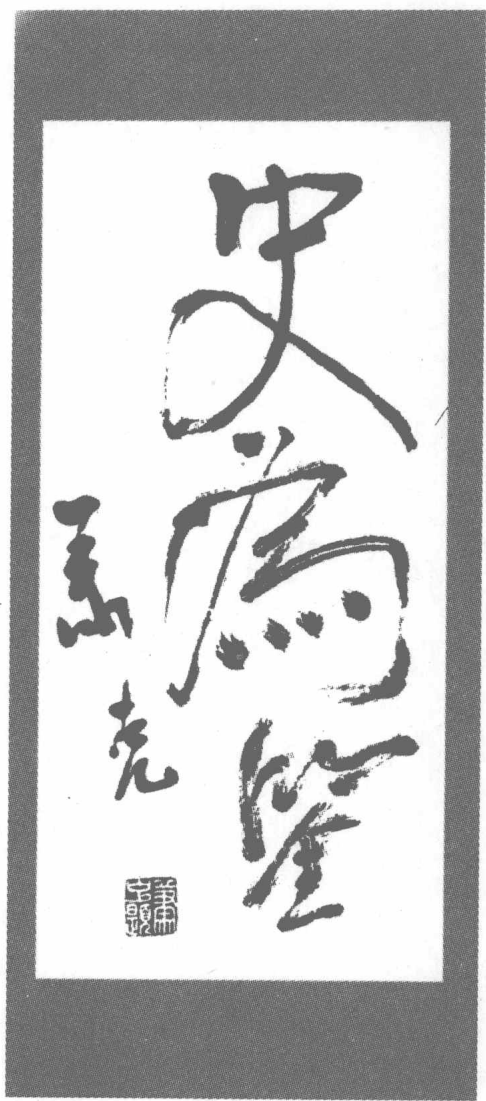 史為鉴
萧克